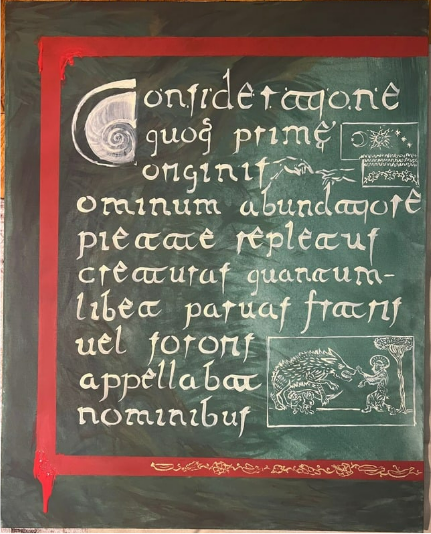 Consideratione
quoq; primę
originis
ominum abundatiorē
pietate repletus
creaturas quantum-
libet paruas fratris
uel sororis
appellabat
nominibus